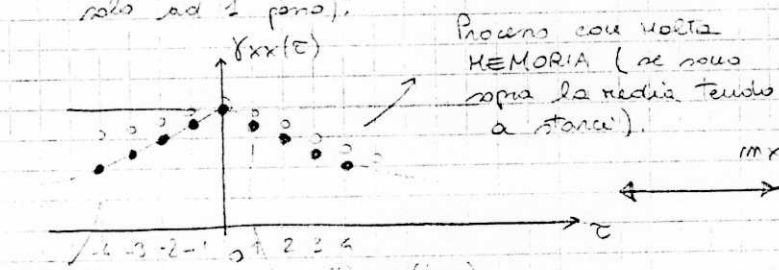 solo ad 1 passo).
γxx(τ)
Processo con molta
MEMORIA (se sono
sopra la media tendo
a starci).
mx
τ
-4 -3 -2 -1 0 1 2 3 4